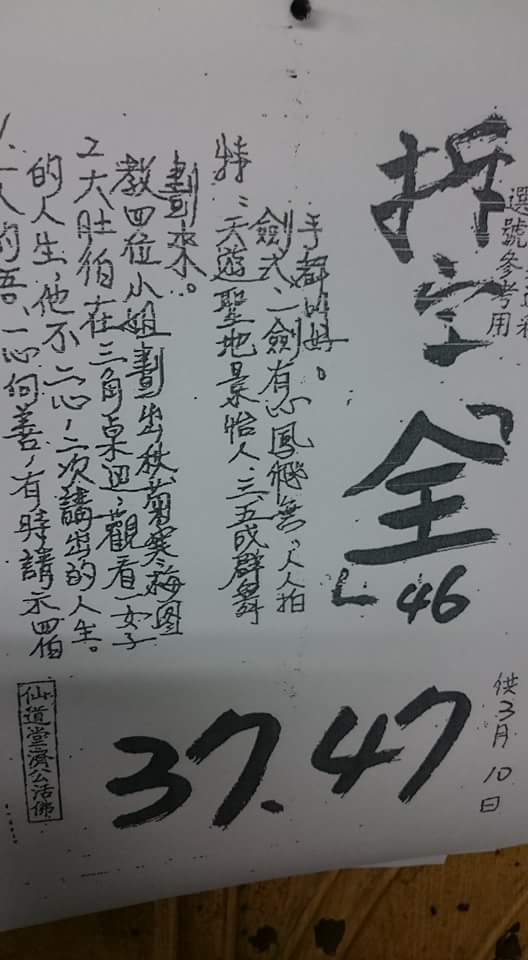 選號參考用
拆字「全」46
供3月10日
37.47
手都叫好。
劍式、一劍有心鳳飛無、人人拍
特：天遊聖地景怡人、三、五成群尋
劃來。
教四位小姐劃出秋菊寒梅图
大肚伯在三角桌迎、觀看一女子
的人生，他不二心，二次講出的人生。
心向善，有時請示四伯
仙道堂濟公活佛